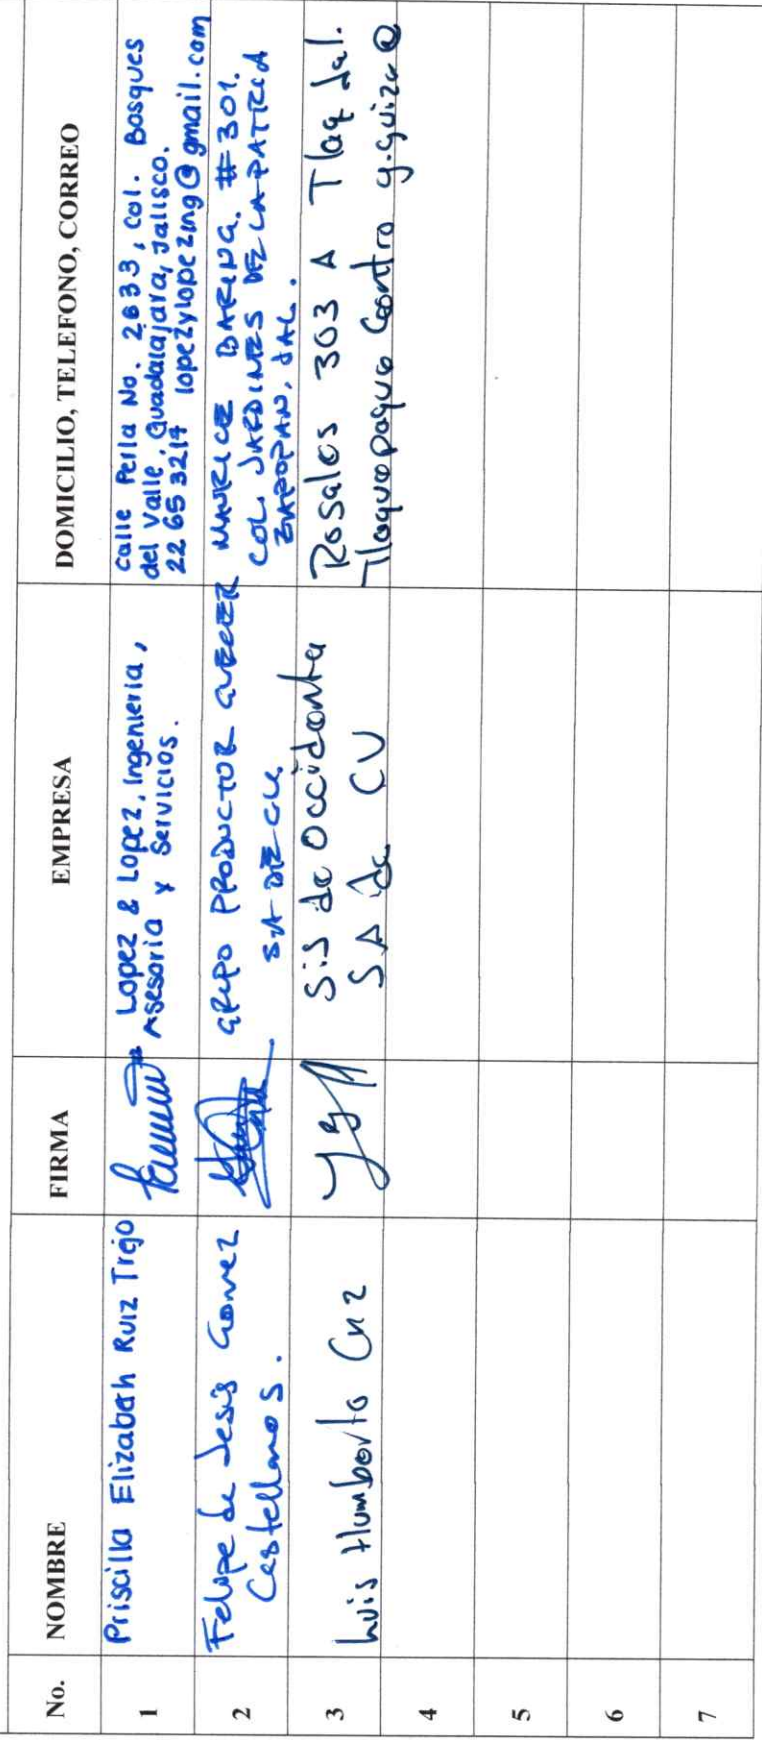 No. NOMBRE FIRMA EMPRESA DOMICILIO, TELEFONO, CORREO
1 Priscilla Elizabeth Ruiz Trejo
Lopez & Lopez, Ingenieria,
Asesoria y Servicios.
Calle Perla No. 2633, Col. Bosques
del Valle, Guadalajara, Jalisco.
22 65 3214 lopezylopezing@gmail.com
2 Felipe de Jesús Gomez
Castellanos.
GRUPO PRODUCTOR
SA DE CV.
MAURICE BARING #301.
COL. JARDINES DE LA PATRIA
ZAPOPAN, JAL.
3 Luis Humberto
Sis de Occidente
SA de CV
Rosales 303 A Tlaq Jal.
Tlaquepaque Centro y.guizar@
4
5
6
7